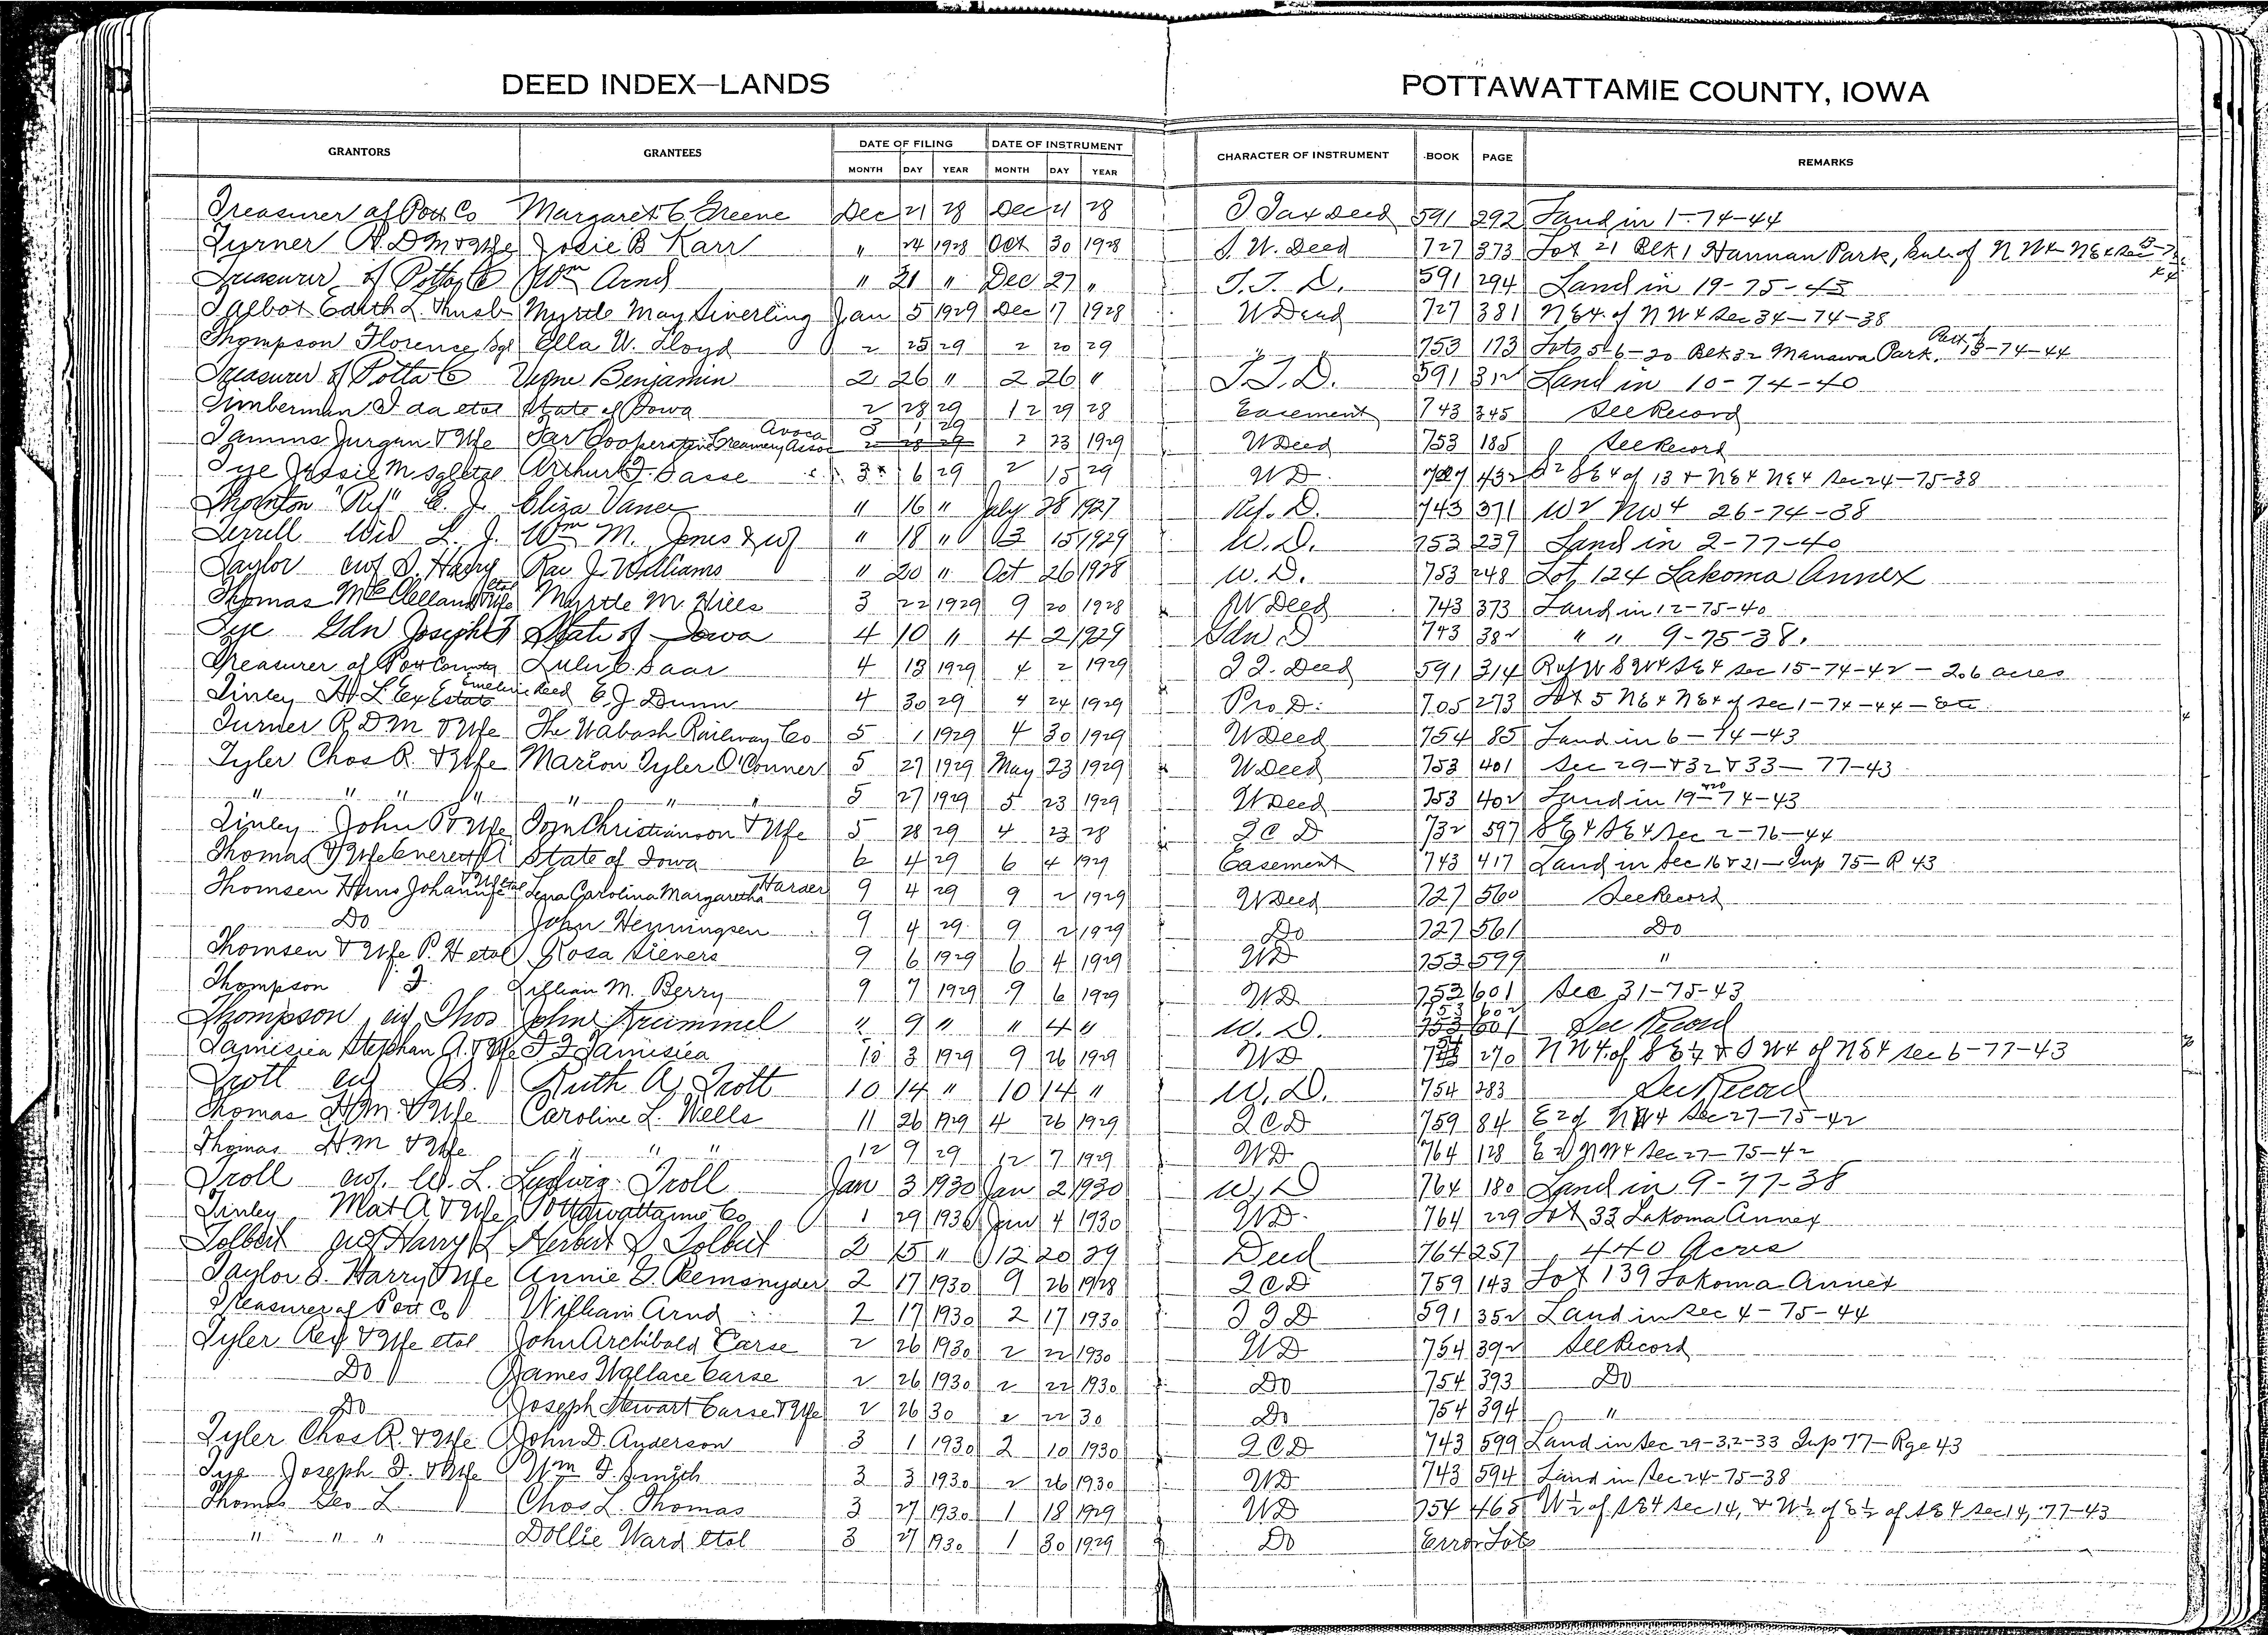 DEED INDEX—LANDS POTTAWATTAMIE COUNTY, IOWA
GRANTORS GRANTEES DATE OF FILING DATE OF INSTRUMENT CHARACTER OF INSTRUMENT BOOK PAGE REMARKS
MONTH DAY YEAR MONTH DAY YEAR
Treasurer of Pott Co Margaret C Greene Dec 21 28 Dec 21 28 T Tax Deed 591 292 Land in 1-74-44
Turner R. D M & Wfe Josie B Karr " 24 1928 Oct 30 1928 S. W. Deed 727 373 Lot 21 Blk 1 Hannan Park, Sub. of N W4 NE4 Sec
Treasurer of Potta Co Wm Arnd " 21 " Dec 27 " T. T. D. 591 294 Land in 19-75-43
Talbot Edith L. & husb Myrtle May Siverling Jan 5 1929 Dec 17 1928 W Deed 727 381 NE4 of N W4 Sec 34-74-38
Thompson Florence Sgl Ella W. Lloyd 2 25 29 2 20 29 " 753 173 Lots 5-6-20 Blk 32 Manawa Park, Part of 13-74-44
Treasurer of Potta Co Verne Benjamin 2 26 " 2 26 " T. T. D. 591 312 Land in 10-74-40
Timberman Ida etal State of Iowa 2 28 29 12 29 28 Easement 743 345 See Record
Tamms Jurgen & Wfe Farm Cooperative Creamery Assoc Avoca 3 1 29 2 23 1929 W Deed 753 185 See Record
Tye Jessie M sgl etal Arthur F. Sasse 3 6 29 2 15 29 WD 727 432 S2 SE4 of 13 & NE4 NE4 Sec 24-75-38
Thornton "Ref" E. J. Eliza Vance " 16 " July 28 1927 Ref. D. 743 371 W2 NW4 26-74-38
Terrell Wid L. J. Wm M. Jones & wf " 18 " 03 15 1929 W. D. 753 239 Land in 2-77-40
Taylor awf S. Harry Rae J. Williams " 20 " Oct 26 1928 W. D. 753 248 Lot 124 Lakoma Annex
Thomas McClelland & Wfe etal Myrtle M. Hills 3 22 1929 9 20 1928 W Deed 743 373 Land in 12-75-40
Tye Gdn Joseph F State of Iowa 4 10 " 4 2 1929 Gdn D 743 382 " " 9-75-38.
Treasurer of Pott County Lulu C. Saar 4 13 1929 4 2 1929 T T. Deed 591 314 SW4 SE4 Sec 15-74-42 - 2.6 acres
Tinley H. L Ex Estate Emeline Reed E. J. Dunn 4 30 29 4 24 1929 Pro. D. 705 273 Lot 5 NE4 NE4 of Sec 1-74-44 - Etc
Turner R D M & Wife The Wabash Railway Co 5 1 1929 4 30 1929 W Deed 754 85 Land in 6-74-43
Tyler Chas R. & Wfe Marion Tyler O'Conner 5 27 1929 May 23 1929 W Deed 753 401 Sec 29-&32 & 33-77-43
" " " " " " " 5 27 1929 5 23 1929 W Deed 753 402 Land in 19-74-43
Tinley John P & Wfe Christianson & Wfe 5 28 29 4 23 28 Q C D 732 597 SE4 SE4 Sec 2-76-44
Thomas & Wfe Everett A State of Iowa 6 4 29 6 4 1929 Easement 743 417 Land in Sec 16 & 21 - Twp 75 - R 43
Thomsen Hans Johann & Wfe etal Lena Carolina Margaretha Harder 9 4 29 9 2 1929 W Deed 727 560 See Record
Do John Henningsen 9 4 29 9 2 1929 Do 727 561 Do
Thomsen & Wfe P. H etal Rosa Sievers 9 6 1929 6 4 1929 WD 753 599 "
Thompson J. Lillian M. Berry 9 7 1929 9 6 1929 WD 753 601 Sec 31-75-43
Thompson Thos John Krummel " 9 " " 4 " W. D. 753 602 See Record
Tamisiea Stephan A. & Wfe T F Tamisiea 10 3 1929 9 26 1929 WD 270 N W4 of SE1/4 & S W4 of NE4 Sec 6-77-43
Trott B. Ruth A. Trott 10 14 " 10 14 " W. D. 754 283 See Record
Thomas H. M. & Wife Caroline L. Wells 11 26 1929 4 26 1929 Q C D 759 84 E2 of NW4 Sec 27-75-42
Thomas H. M & Wfe " " " 12 9 29 12 7 1929 WD 764 128 E2 NW4 Sec 27-75-42
Troll awf. W. L. Ludwig Troll Jan 3 1930 Jan 2 1930 W. D 764 180 Land in 9-77-38
Tinley Mat A & Wfe Pottawattamie Co 1 29 1930 Jan 4 1930 WD 764 229 Lot 33 Lakoma Annex
Tolbert Harry L Herbert Tolbert 2 15 " 12 20 29 Deed 764 257 440 Acres
Taylor S. Harry & Wfe Annie G. Remsnyder 2 17 1930 9 26 1928 Q C D 759 143 Lot 139 Lakoma Annex
Treasurer of Pott Co William Arnd 2 17 1930 2 17 1930 T T D 591 352 Land in Sec 4-75-44
Tyler Rey & Wfe etal John Archibald Carse 2 26 1930 2 22 1930 WD 754 392 See Record
Do James Wallace Carse 2 26 1930 2 22 1930 Do 754 393 Do
Do Joseph Stewart Carse & Wfe 2 26 30 2 22 30 Do 754 394 "
Tyler Chas R. & Wfe John D. Anderson 3 1 1930 2 10 1930 Q C D 743 599 Land in Sec 29-32-33 Twp 77-Rge 43
Tye Joseph F. & Wfe Wm F. Smith 3 3 1930 2 26 1930 WD 743 594 Land in Sec 24-75-38
Thomas Geo L Chas L. Thomas 3 27 1930 1 18 1929 WD 754 465 W1/2 of SE4 Sec 14, & W1/2 of E1/2 of SE4 Sec 14, 77-43
" " " Dollie Ward etal 3 27 1930 1 30 1929 Do Error Lots